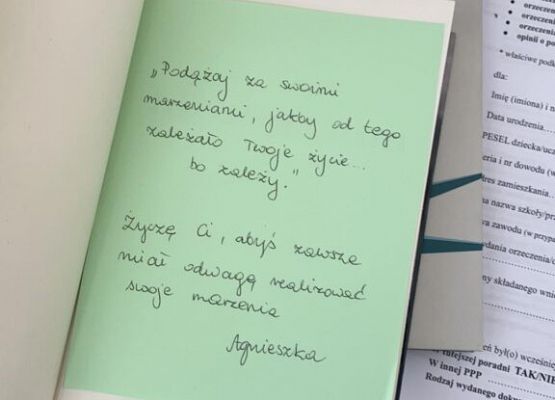 „Podążaj za swoimi
marzeniami, jakby od tego
zależało Twoje życie...
bo zależy."
Życzę Ci, abyś zawsze
miał odwagę realizować
swoje marzenia
Agnieszka
orzeczeni
orzeczenia
opinii o po
* właściwe podk
dla:
Imię (imiona) i n
Data urodzenia...
PESEL dziecka/ucz
eria i nr dowodu (w
res zamieszkania.
a nazwa szkoły/pr
a zawodu (w przyp
ydania orzeczenia/o
ny składanego wni
eń był(o) wcześniej
niejszej poradni TAK/NIE
W innej PPP
Rodzaj wydanego doku